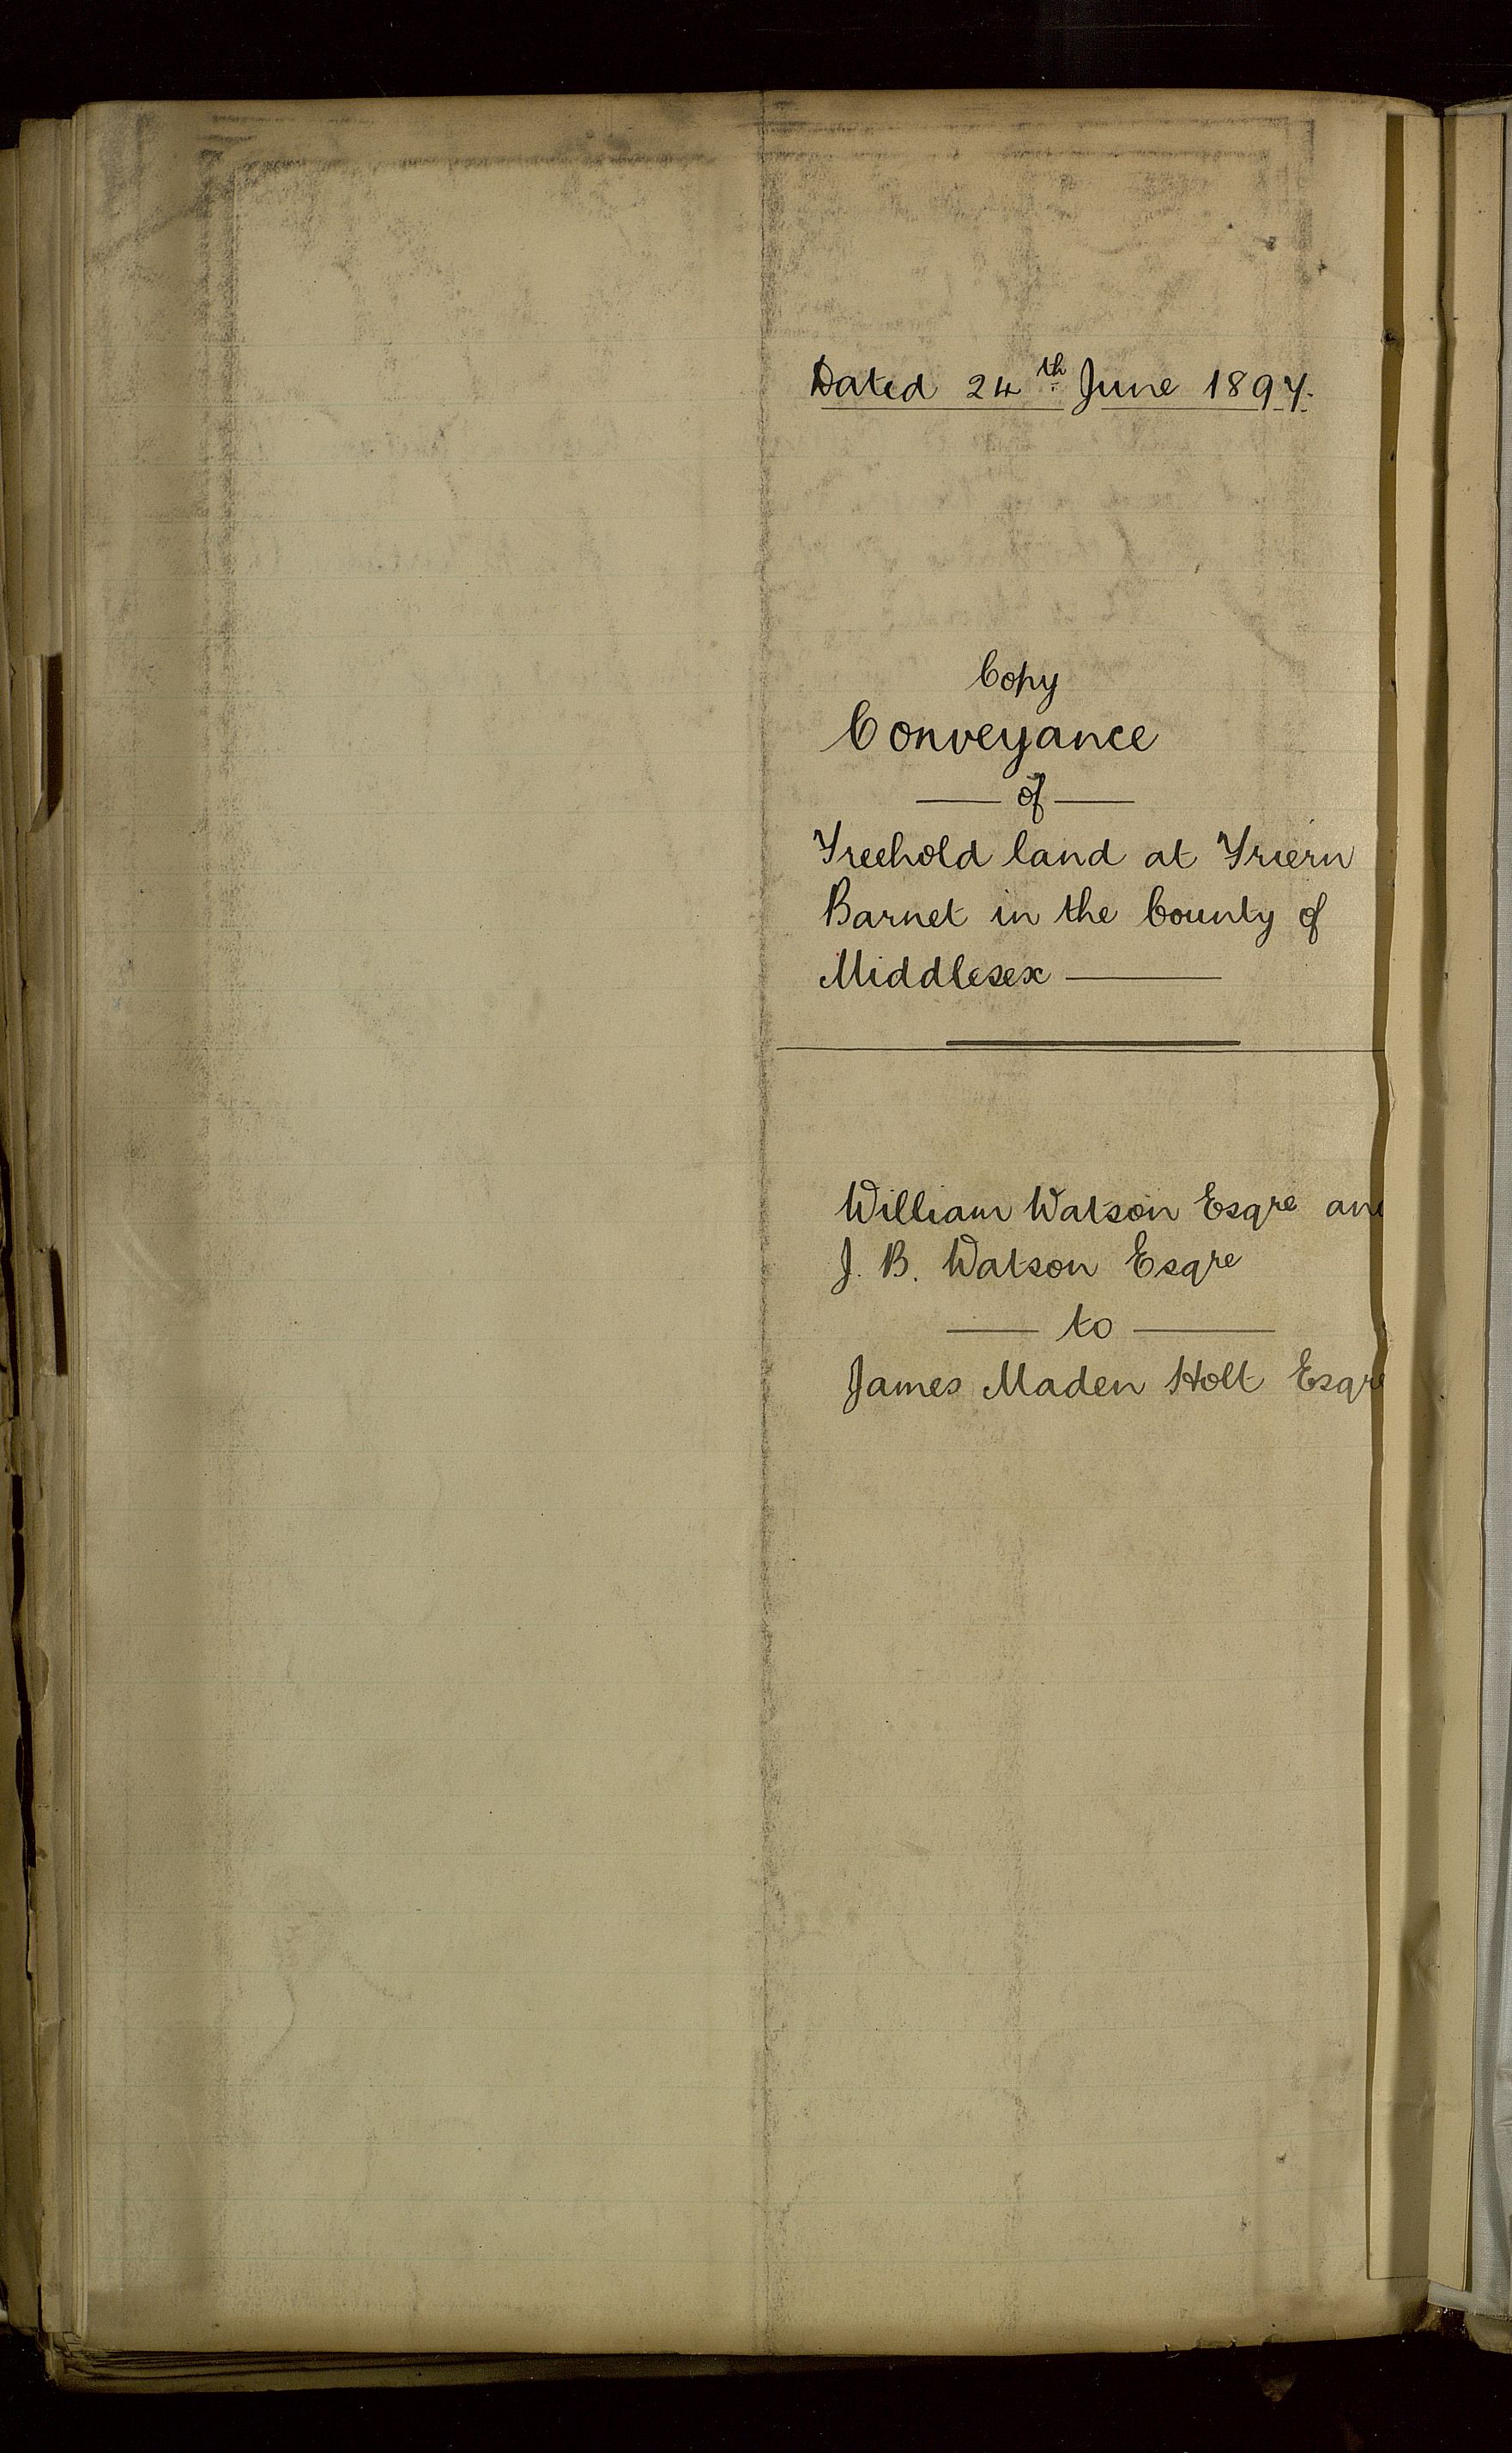 Dated 24th June 1897.
Copy
Conveyance
— of —
Freehold land at Friern
Barnet in the County of
Middlesex —
William Watson Esqre and
J. B. Watson Esqre
— to —
James Maden Holt Esqre